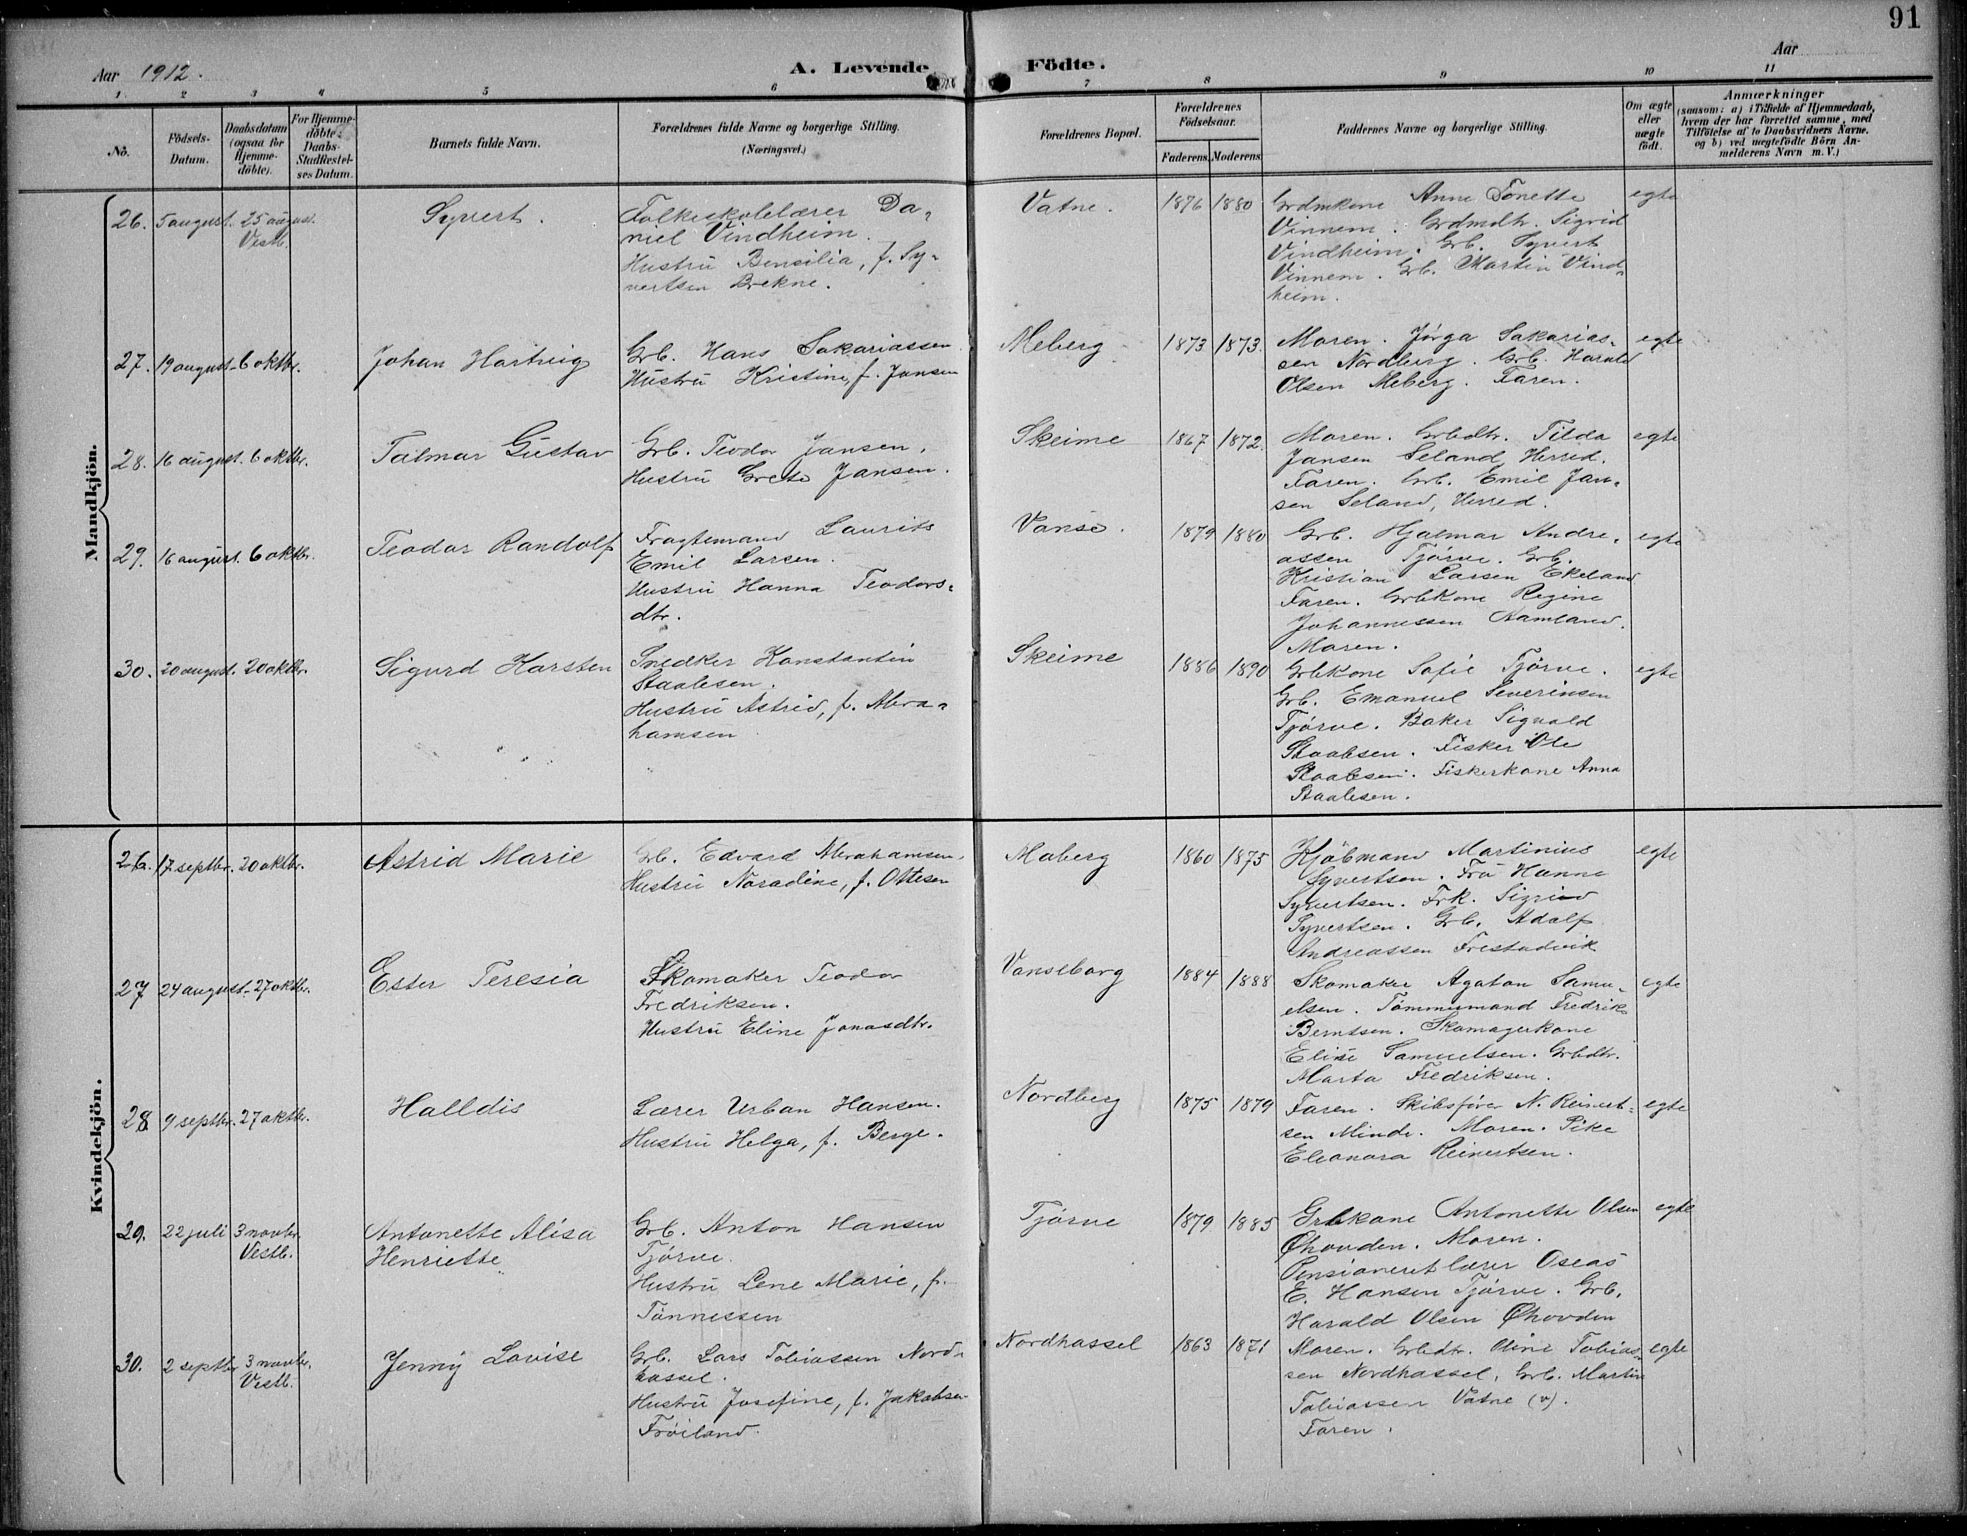 91
Aar 1912.
A. Levende Födte.
Aar
1. 2 3 4 5 6 7 8 9 10 11
No.
Födsels-Datum.
Daabsdatum (ogsaa for Hjemme-döbte).
For Hjemme-döbte: Daabs-Stadfæstel-ses Datum.
Barnets fulde Navn.
Forældrenes fulde Navne og borgerlige Stilling.
(Næringsvei.)
Forældrenes Bopæl.
Forældrenes Födselsaar.
Faderens. Moderens.
Faddernes Navne og borgerlige Stilling.
Om ægte eller uægte födt.
Anmærkninger
(saasom: a) i Tilfælde af Hjemmedaab, hvem der har forrettet samme, med Tilföielse af to Daabsvidners Navne. og b) ved uægtefödte Börn Anmelderens Navn m. V.)
Mandkjön.
26. 5 august. 25 august. Vestb.
Syvert.
Folkeskolelærer Da-
niel Vindheim.
Hustru Bensilia, f. Sy-
vertsen Brekne.
Vatne.
1876 1880
Grdmkone Anne Tonette
Vinnem. Grdmdtr. Sigrid
Vindheim. Grb. Syvert
Vinnem. Grb. Martin Vind-
heim.
egte
27. 19 august. 6 oktbr.
Johan Hartvig
Grb. Hans Sakariassen
Hustru Kristine, f. Jansen
Meberg
1873 1873.
Moren. Jørga Sakarias-
sen Nordberg. Grb. Harald
Olsen Meberg. Faren.
egte
28. 16 august. 6 oktbr.
Talmar Gustav
Grb. Teodor Jansen,
Hustru Grete Jansen.
Skeime
1867 1872.
Moren. Grbdtr. Tilda
Jansen Seland, Herred.
Faren. Grb. Emil Jan-
sen Seland, Herred.
egte
29. 16 august. 6 oktbr.
Teodor Randolf
Fragtemand Laurits
Emil Larsen.
Hustru Hanna Teodors-
dtr.
Vanse.
1879 1880
Grb. Hjalmar Andre-
assen Tjørve. Grb.
Kristian Larsen Ekeland
Faren. Grbkone Regine
Johannessen Aamland.
Moren.
egte
30. 20 august. 20 oktbr.
Sigurd Karsten
Snedker Konstantin
Staalesen.
Hustru Astrid, f. Abra-
hamsen
Skeime
1886 1890
Grbkone Sofie Tjørve.
Grb. Emanuel Severinsen
Tjørve. Baker Sigvald
Staalesen. Fisker Ole
Staalesen. Fiskerkone Anna
Staalesen.
egte
Kvindekjön.
26. 17 septbr. 20 oktbr.
Astrid Marie
Grb. Edvard Abrahamsen.
Hustru Noradine, f. Ottesen
Maberg
1860 1875
Kjøbmand Martinius
Syvertsen. Fru Hanna
Syvertsen. Frk. Sigrid
Syvertsen. Grb. Adolf
Andreassen Frestadvik
egte
27 24 august. 27 oktbr.
Ester Teresia
Skomaker Teodor
Fredriksen.
Hustru Eline Jonasdtr.
Vanseborg
1884 1888
Skomaker Agaton Samu-
elsen. Tømmermand Fredrik
Berntsen. Skomagerkone
Elise Samuelsen. Grbdtr.
Marta Fredriksen.
egte
28 9 septbr. 27 oktbr.
Halldis
Lærer Urban Hansen.
Hustru Helga, f. Berge.
Nordberg
1875 1879
Faren. Skibsfører N. Reinert-
sen Minde. Moren. Pike
Eleonora Reinertsen.
egte
29. 22 juli 3 novbr. Vestb.
Antonette Alisa
Henriette
Grb. Anton Hansen
Tjørve.
Hustru Lene Marie, f.
Tønnessen
Tjørve
1879 1885
Grbkone Antonette Olsen
Øhovden. Moren.
Pensioneret lærer Oseas
E. Hansen Tjørve. Grb.
Harald Olsen Øhovden
egte
30. 2 septbr 3 novbr. Vestb.
Jenny Lovise
Grb. Lars Tobiassen Nord-
hassel.
Hustru Josefine, f. Jakobsen
Frøiland.
Nordhassel
1863 1871
Moren. Grbdtr. Oline Tobias-
sen Nordhassel, Grb. Martin
Tobiassen Vatne (v).
Faren.
egte